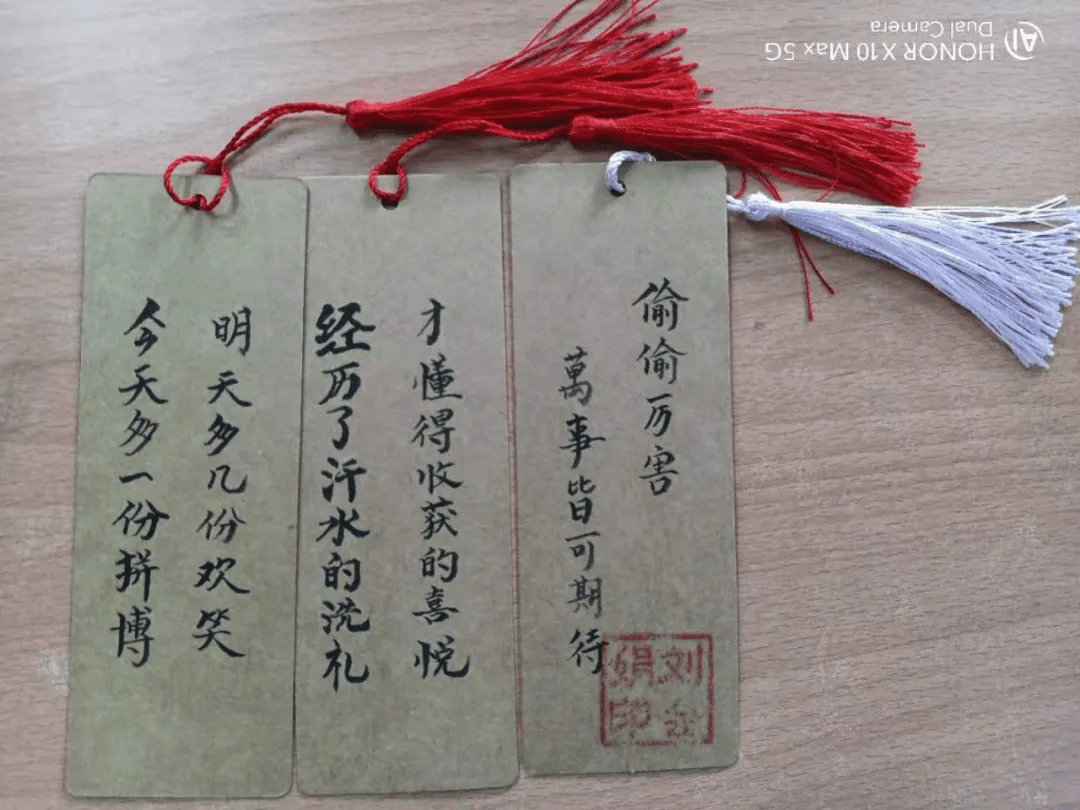 今天多一份拼博
明天多几份欢笑
经历了汗水的洗礼
才懂得收获的喜悦
偷偷厉害
萬事皆可期待
刘
娟印
AI
HONOR X10 Max 5G
Dual Camera